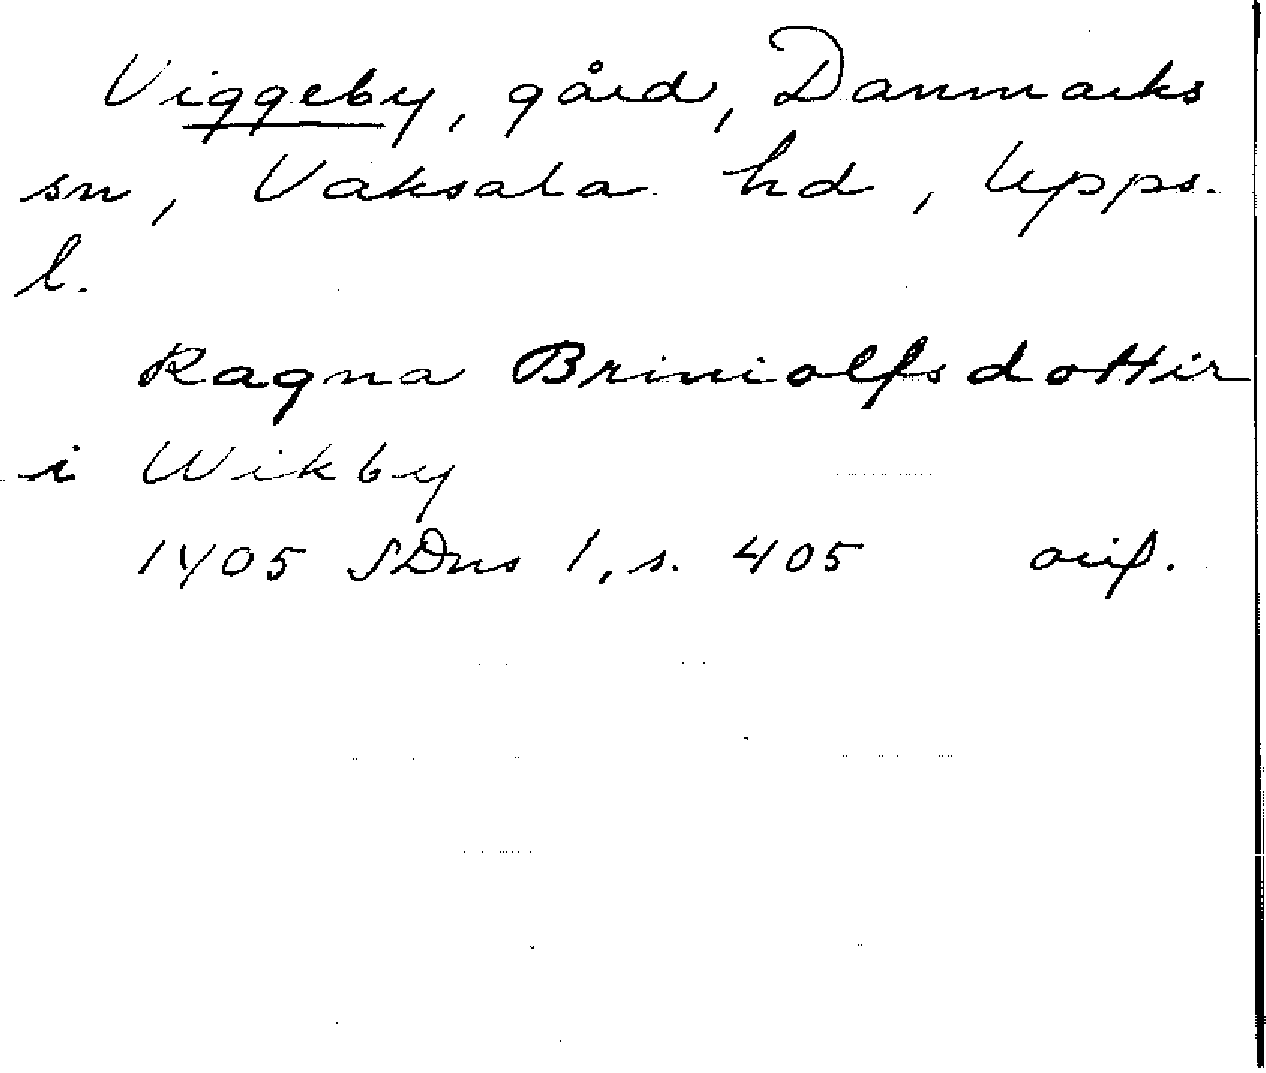 Viggeby, gård, Danmarks
sn, Vaksala hd, Upps.
l.
Ragna Briniolfsdottir
i Wikby
1405 SDns 1, s. 405 orig.